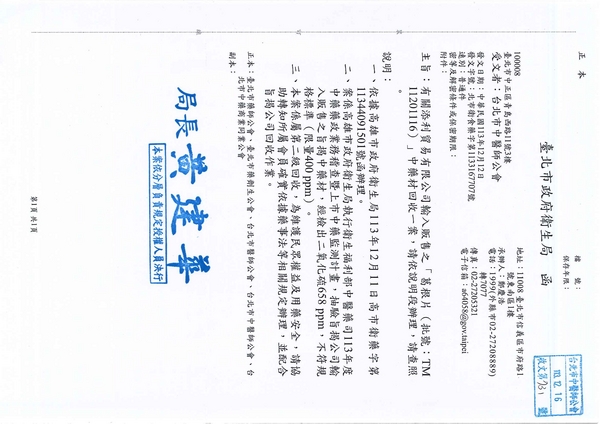 正本
檔　號：
保存年限：
臺北市政府衛生局　函
地址：11008 臺北市信義區市府路1
號東南區1樓
承辦人：鄭慶浩
電話：1999(外縣市02-27208889)
轉7077
傳真：02-27205321
電子信箱：a64058@gov.taipei
100008
臺北市中正區青島西路11號3樓
受文者：台北市中醫師公會
發文日期：中華民國113年12月12日
發文字號：北市衛食藥字第1133167707號
速別：普通件
密等及解密條件或保密期限：
附件：
主旨：有關添利貿易有限公司輸入販售之「葛根片（批號：TM
11201116）」中藥材回收一案，請依說明段辦理，請查照
。
說明：
一、依據高雄市政府衛生局113年12月11日高市衛藥字第
11344091501號函辦理。
二、案係高雄市政府衛生局執行衛生福利部中醫藥司113年度
中藥藥政業務稽查暨上市中藥監測計畫，抽驗旨揭公司輸
入販售之旨揭中藥材，經檢出二氧化硫658 ppm，不符規
格標準（限量400 ppm）。
三、本案係屬第二級回收，為維護民眾權益及用藥安全，請協
助轉知所屬會員確實依據藥事法等相關規定辦理，並配合
旨揭公司回收作業。
正本：臺北市藥師公會、臺北市藥劑生公會、台北市醫師公會、台北市中醫師公會、台
北市中藥商業同業公會
副本：
局長 黃建華
本案依分層負責規定授權人員決行
第1頁 共1頁
台北市中醫師公會
113.12.16
收文第731號